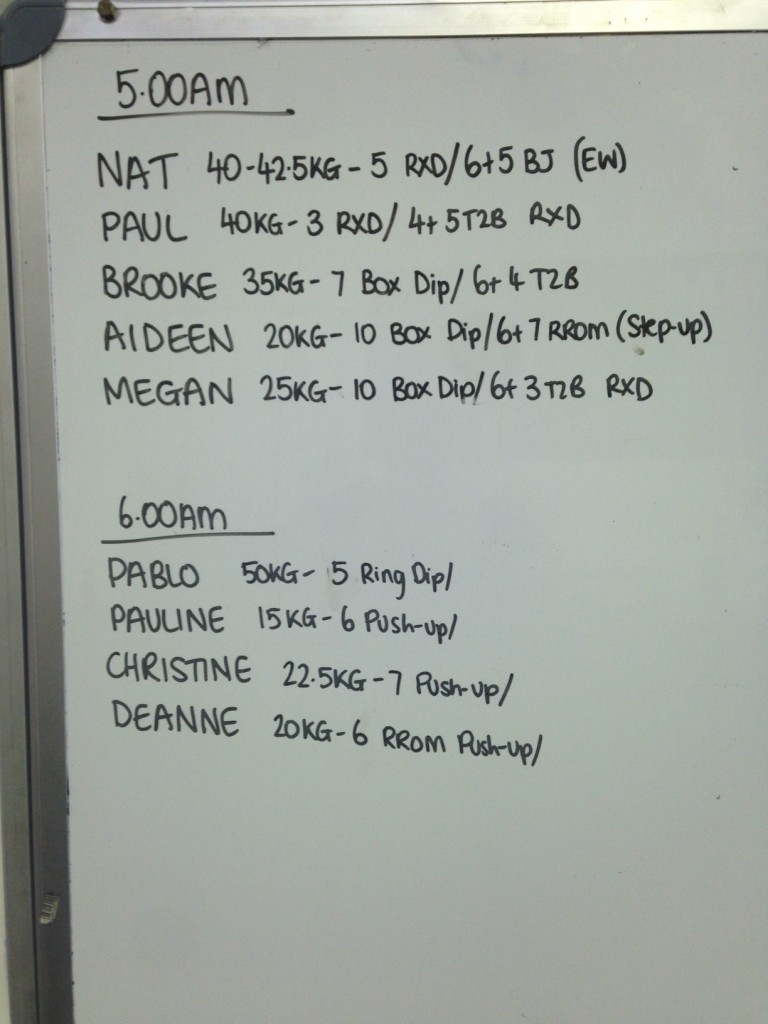 5.00AM
NAT 40-42.5KG - 5 RXD/6+5 BJ (EW)
PAUL 40KG - 3 RXD/ 4+ 5T2B RXD
BROOKE 35KG - 7 Box Dip/ 6+ 4 T2B
AIDEEN 20KG - 10 Box Dip/6+ 7 RROM (Step-up)
MEGAN 25KG - 10 Box Dip/ 6+ 3 T2B RXD
6.00AM
PABLO 50KG - 5 Ring Dip/
PAULINE 15KG - 6 Push-up/
CHRISTINE 22.5KG - 7 Push-up/
DEANNE 20KG - 6 RROM Push-up/